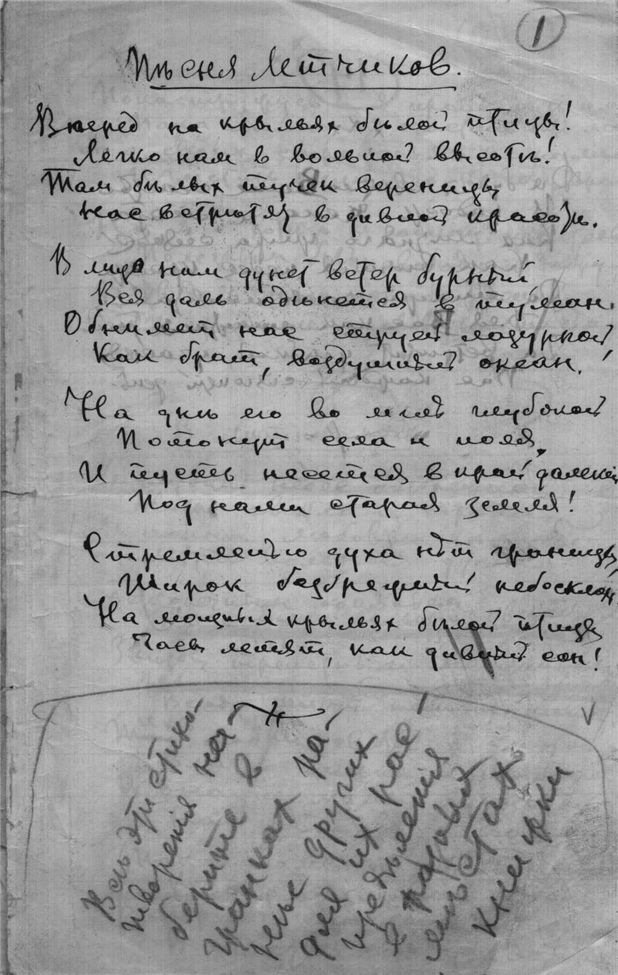 1
Пѣсня летчиков.
Вперед на крыльях бѣлой птицы!
Легко нам в вольной высотѣ!
Там бѣлых тучек вереницы
нас встрѣтят в дивной красотѣ.
В лицо нам дунет ветер бурный,
Вся даль одѣнется в туман.
Обнимет нас струей лазурной,
Как брат, воздушный океан!
На днѣ его во мглѣ глубокой
Потонут села и поля,
И пусть несется в край далекий
Под нами старая земля!
Стремленью духа нѣт границы,
Широк безбрежный небосклон,
На мощных крыльях бѣлой птицы
Часы летят, как дивный сон!
Всѣ эти стихо-
творения на-
берите в
гранках ра-
нѣе других
для их рас-
предѣления
в разных
мѣстах
книжки